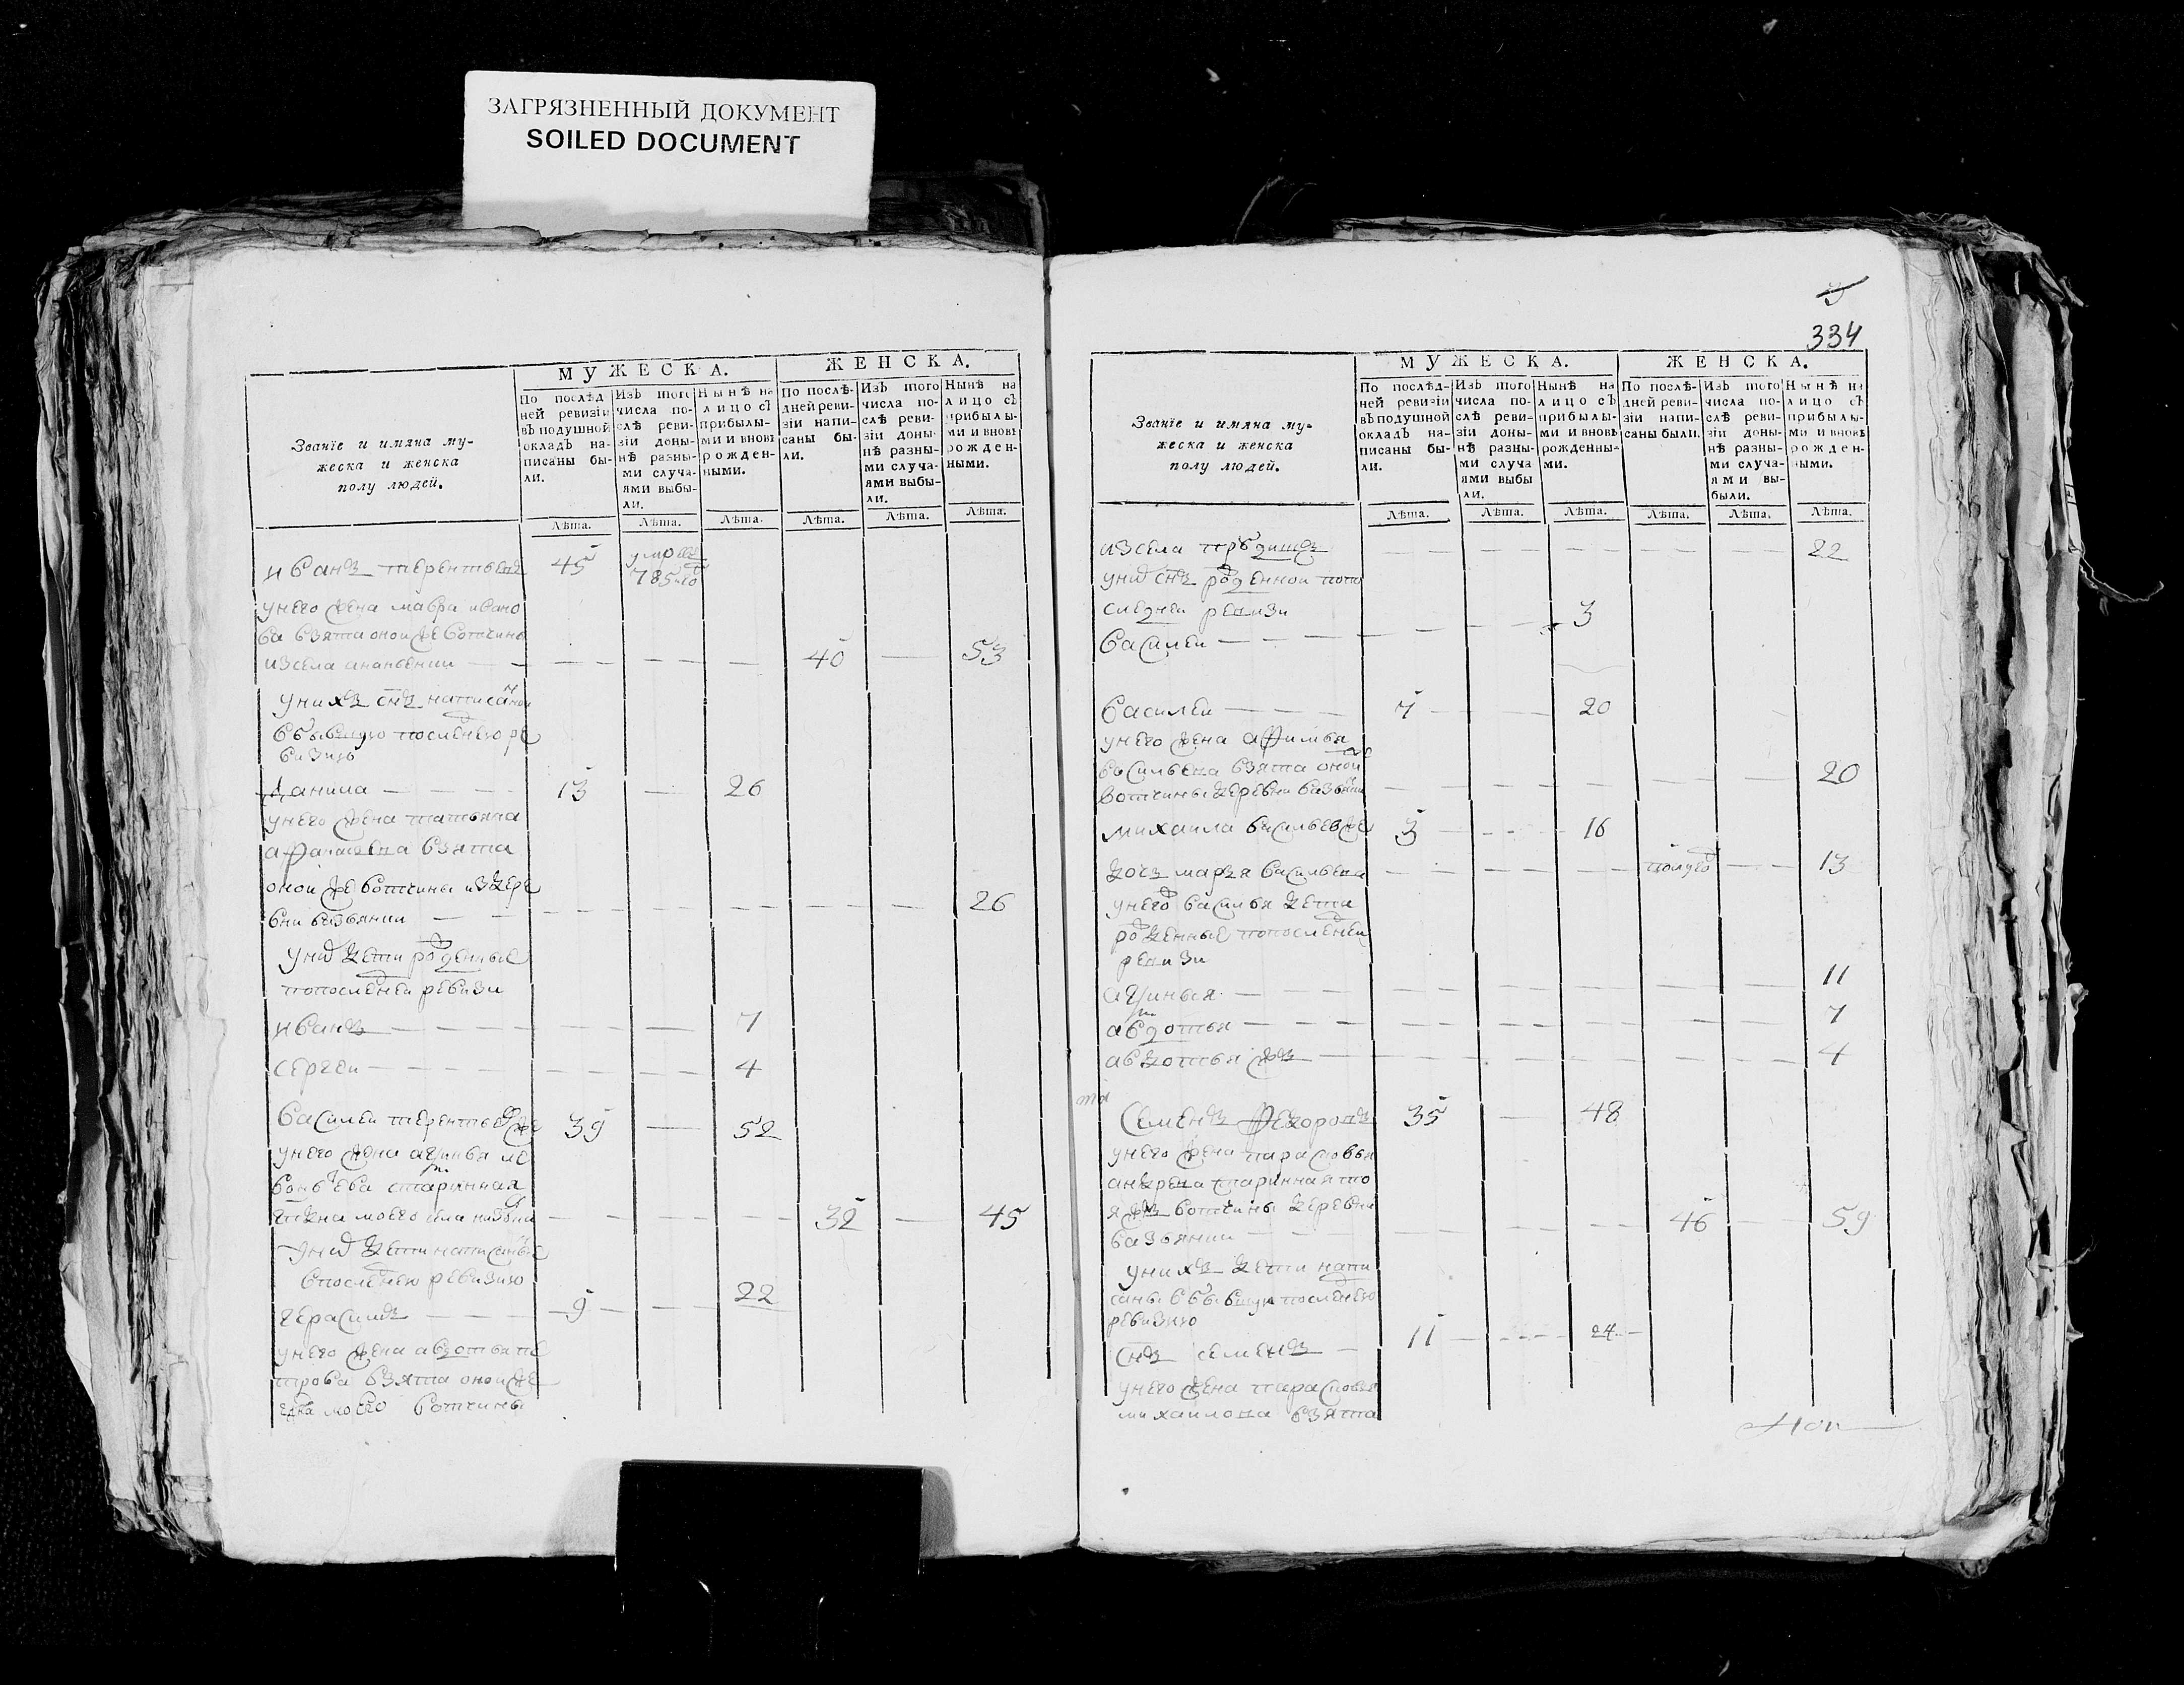 ЗАГРЯЗНЕННЫЙ ДОКУМЕНТ
SOILED DOCUMENT
Званїе и имяна му-
жеска и женска
полу людей.
МУЖЕСКА.
ЖЕНСКА.
По послѣд
ней ревизіи
въ подушной
окладъ на-
писаны бы-
ли.
Изъ того
числа по-
слѣ реви-
зіи доны-
нѣ разны-
ми случа-
ями выбы-
ли.
Нынѣ на
лицо съ
прибылы-
ми и вновь
рожден-
ными.
По послѣ-
дней реви-
зіи напи-
саны бы-
ли.
Изъ того
числа по-
слѣ реви-
зіи доны-
нѣ разны-
ми случа-
ями выбы-
ли.
Нынѣ на
лицо съ
прибылы-
ми и вновь
рожден-
ными.
Лѣта. Лѣта. Лѣта. Лѣта. Лѣта. Лѣта.
иванъ терентьевъ 45 умре 785
унего жена мавра ивано
ва взята оной же вотчины
изсела 40 53
унихъ снъ написанои
вбывшую последнюю ре
визию
данила 13 26
унего жена татьяна
взята
оной же вотчины издере
вни 26
дети рожденные
попоследнеи ревизи
иванъ 7
сергеи 4
василеи терентьев 39 52
унего жена
старинная
моего села 32 45
дети написаные
впоследнею ревизию
герасимъ 9 22
унего жена авдотья пе
трова взята оной же
моего вотчины
334
Званїе и имяна му-
жеска и женска
полу людей.
МУЖЕСКА.
ЖЕНСКА.
По послѣд-
ней ревизіи
въ подушной
окладъ на-
писаны бы-
ли.
Изъ того
числа по-
слѣ реви-
зіи доны-
нѣ разны-
ми случа
ями выбы
ли.
Нынѣ на
лицо съ
прибылы-
ми и вновь
рожденны-
ми.
По послѣ-
дней реви-
зіи напи-
саны были.
Изъ того
числа по-
слѣ реви-
зіи доны-
нѣ разны-
ми случа-
ями вы-
были.
Нынѣ на
лицо съ
прибылы-
ми и вновь
рожден-
ными.
Лѣта. Лѣта. Лѣта. Лѣта. Лѣта. Лѣта.
изсела 22
снъ рожденнои попо
следнеи ревизи
василеи 3
василеи 7 20
унего жена афимья
васильева взята оной
вотчины деревни 20
михаила васильев 3 16
дочь марья васильева 13
унего василья дети
рожденные попоследнеи
ревизи
11
авдотья 7
авдотья жъ 4
семенъ федоровъ 35 48
унего жена парасковья
старинная то
я жъ вотчины деревни 46 59
унихъ дети напи
саны вбывшую последнею
ревизию
снъ семенъ 11 24
унего жена парасковья
михаилова взята